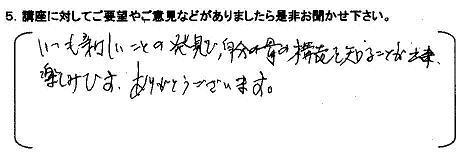 5. 講座に対してご要望やご意見などがありましたら是非お聞かせ下さい。
いつも新しいことの発見で、自分の骨の構造を知ることが出来、
楽しみです。ありがとうございます。